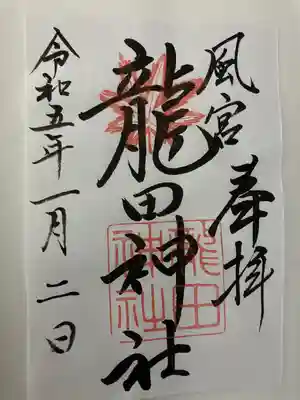 風宮 奉拝
龍田神社
令和五年一月二日
龍田
神社